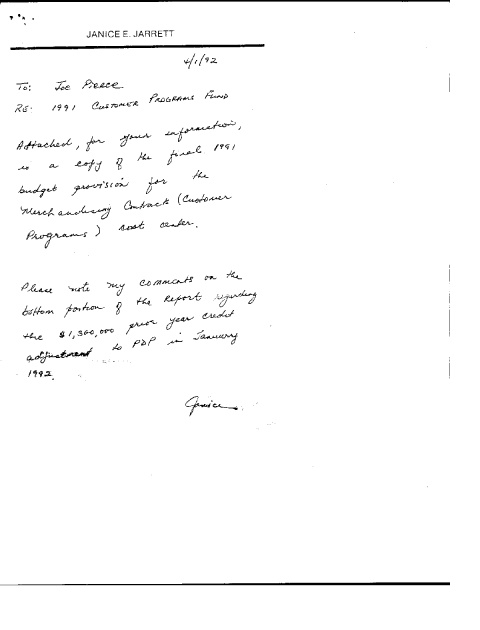 JANICE E. JARRETT
4/1/92
To: Joe Pierce
RE: 1991 CUSTOMER PROGRAMS FUND
Attached, for your information,
is a copy of the final 1991
budget provision for the
Merchandising Contracts (Customer
Programs) cost center.
Please note my comments on the
bottom portion of the Report regarding
the $1,300,000 prior year credit
adjustment to PDP in January
1992.
Janice